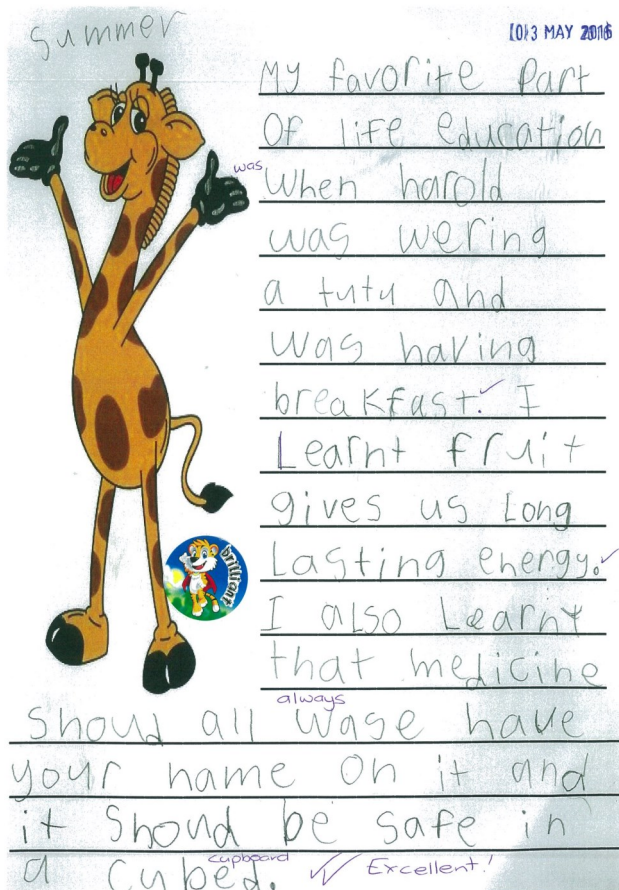 Summer
[0]3 MAY 2016
My favorite Part
Of life education
was
When harold
was wering
a tutu and
Was having
breakfast. I
Learnt fruit
gives us Long
Lasting energy.
brilliant
I also Learnt
that medicine
always
Shoud all wase have
your name On it and
it Shoud be safe in
cupboard
a cubed. Excellent!